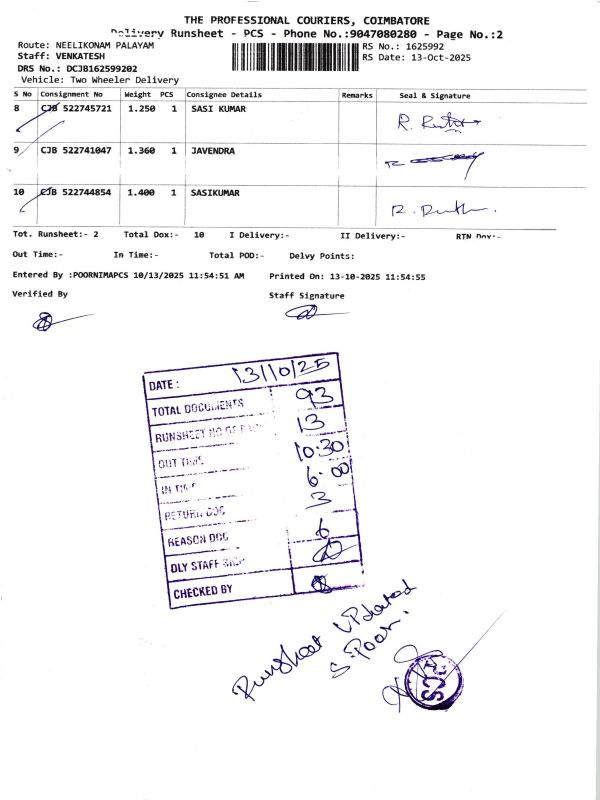 THE PROFESSIONAL COURIERS, COIMBATORE
Delivery Runsheet - PCS - Phone No.:9047080280 - Page No.:2
Route: NEELIKONAM PALAYAM
RS No.: 1625992
Staff: VENKATESH
RS Date: 13-Oct-2025
DRS No.: DCJB162599202
Vehicle: Two Wheeler Delivery
S No Consignment No Weight PCS Consignee Details Remarks Seal & Signature
8 CJB 522745721 1.250 1 SASI KUMAR
9 CJB 522741047 1.360 1 JAVENDRA
10 CJB 522744854 1.400 1 SASIKUMAR
Tot. Runsheet:- 2 Total Dox:- 10 I Delivery:- II Delivery:- RTN Dox:-
Out Time:- In Time:- Total POD:- Delvy Points:
Entered By :POORNIMAPCS 10/13/2025 11:54:51 AM Printed On: 13-10-2025 11:54:55
Verified By Staff Signature
DATE : 13/10/25
TOTAL DOCUMENTS 93
RUNSHEET NO OF 13
OUT TIME 10:30
IN TIME 6:00
RETURN DOC 3
REASON DOC 6
DLY STAFF SIGN
CHECKED BY
Runsheet Updated
S. Poor.
PCS